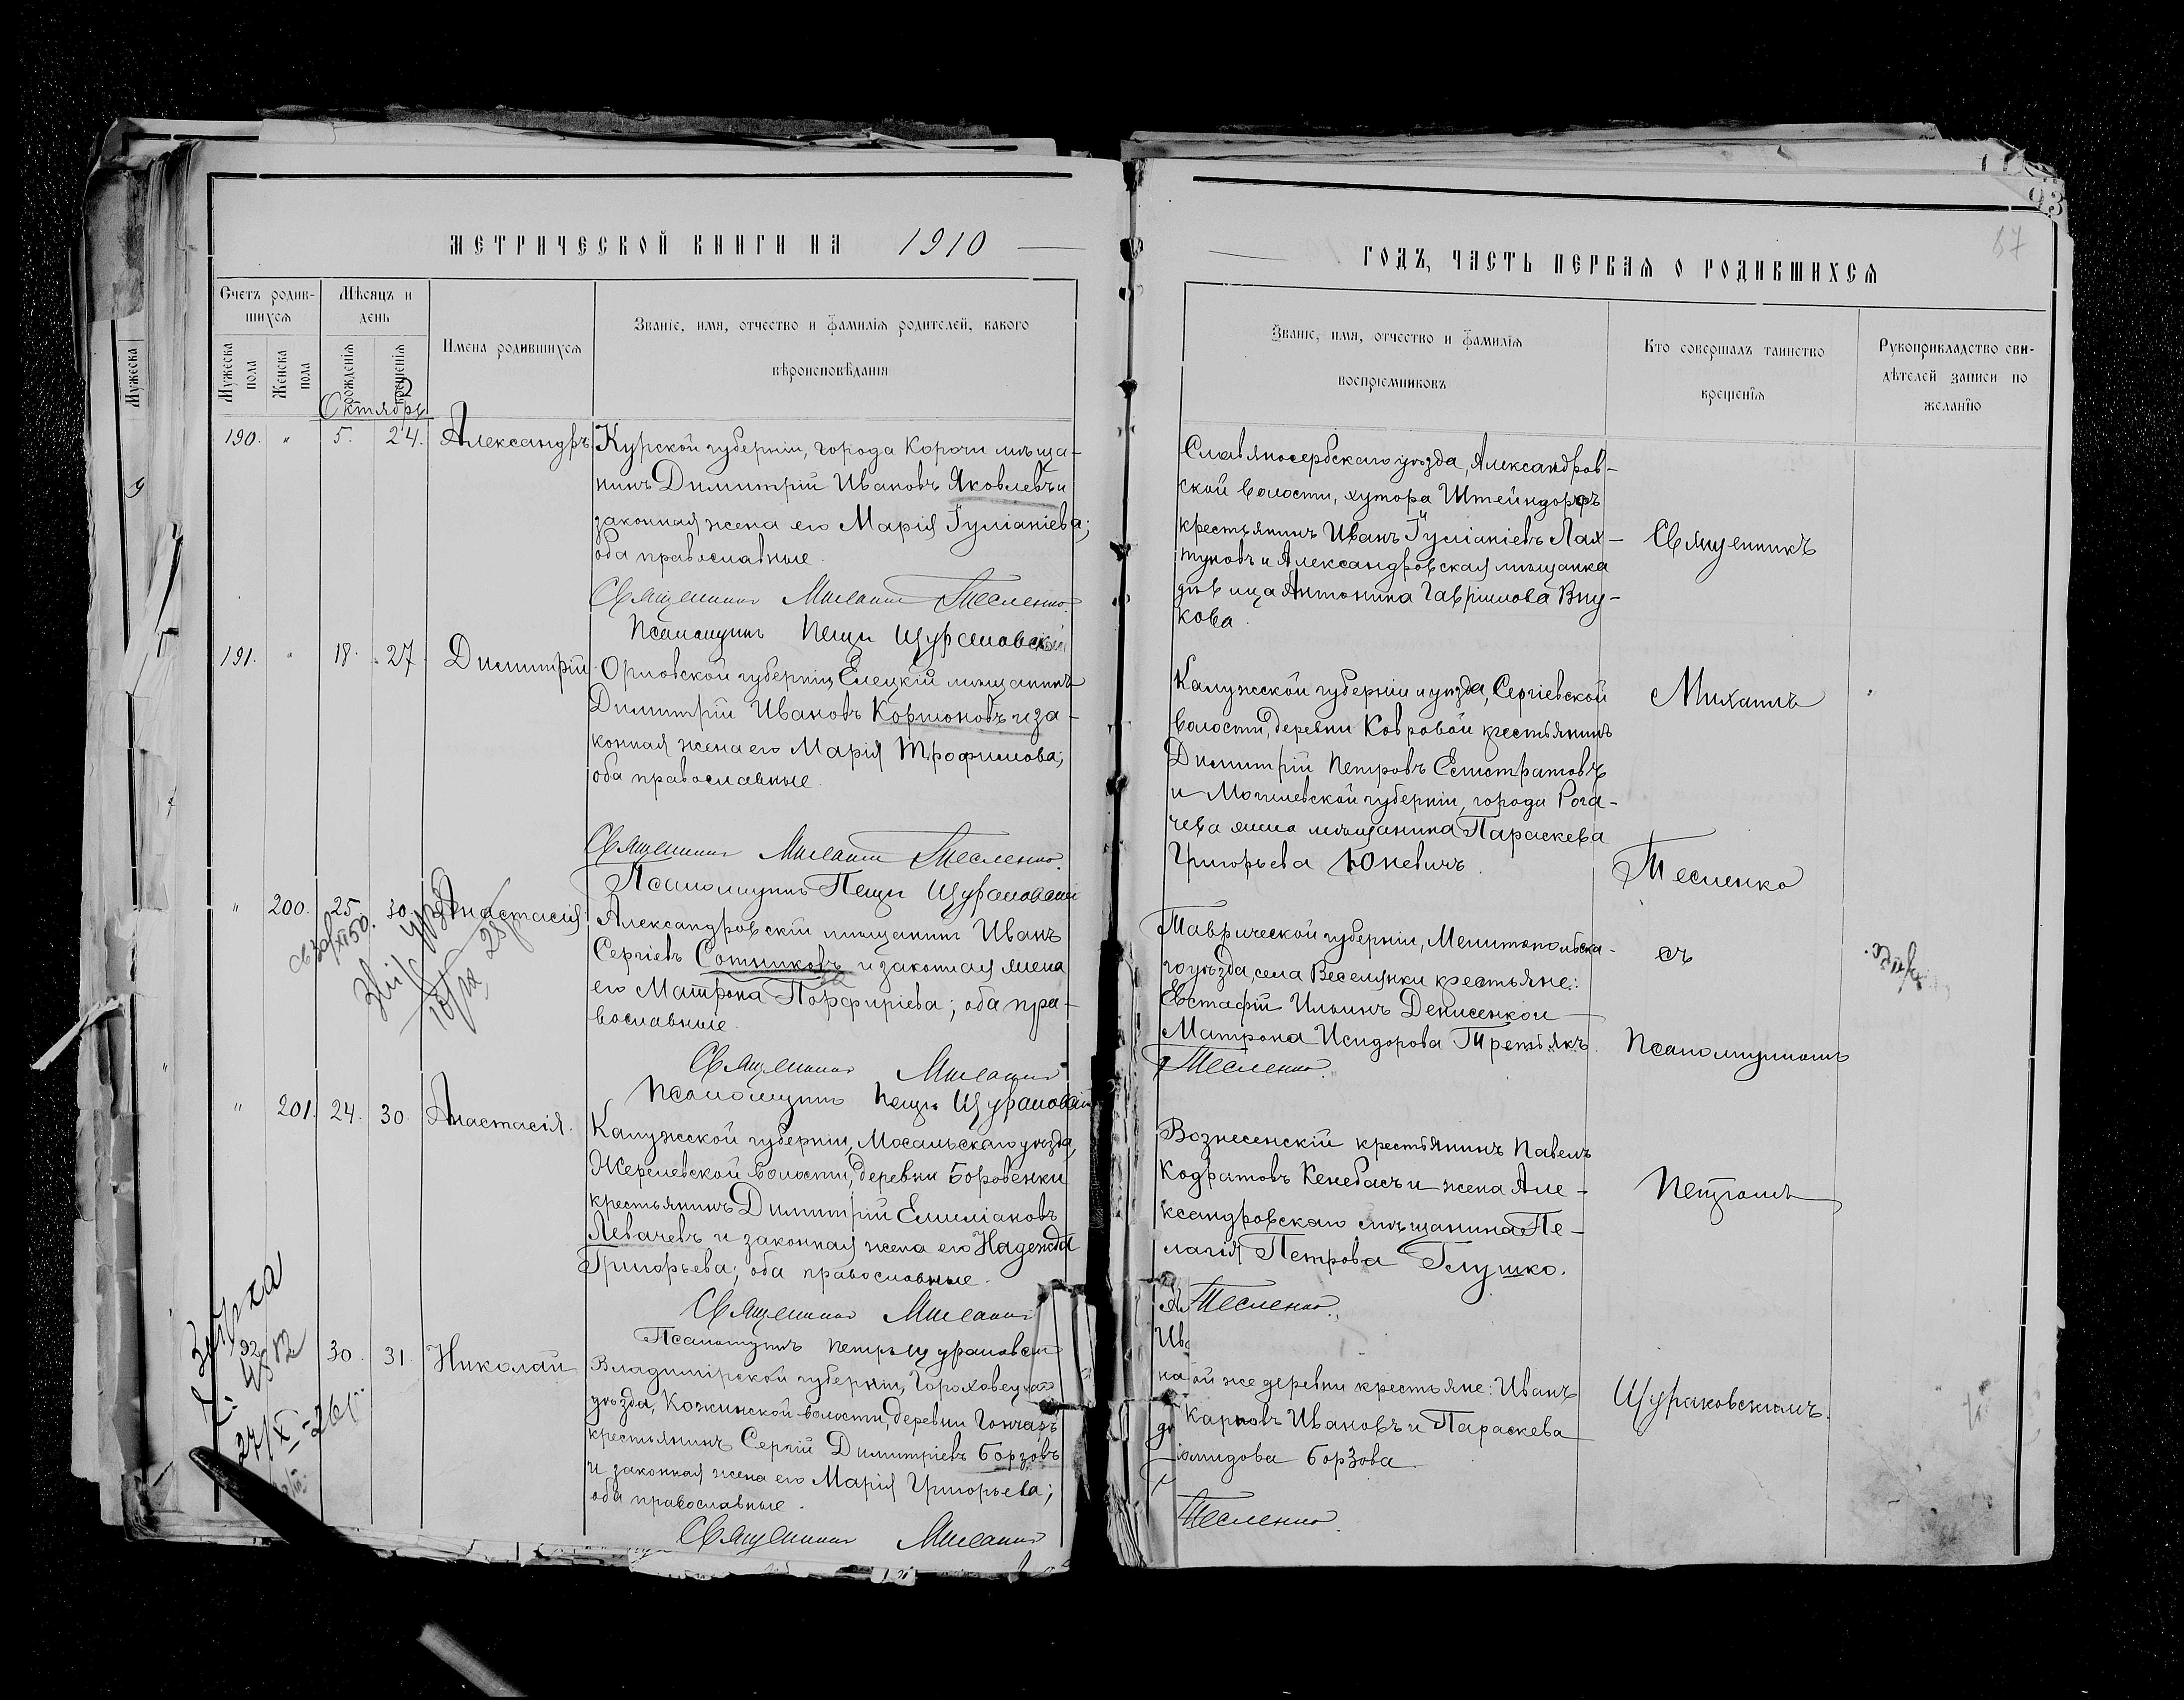 МЕТРИЧЕСКОЙ КНИГИ НА 1910
Счетъ родив-
шихся
Мѣсяцъ и
день
Имена родившихся
Званіе, имя, отчество и фамилія родителей, какого
вѣроисповѣданія
Мужеска
пола
Женска
пола
рожденія
крещенія
Мужеска
Октябрь
190. " 5. 24. Александръ.
Курской губерніи, города Корочи мѣща-
нинъ Димитрій Ивановъ Яковлевъ и
законная жена его Марія Іуліаніева;
оба православные.
Священникъ Михаилъ Тесленко.
Псаломщикъ Петръ Щураковскій
191. " 18. 27. Димитрій.
Орловской губерніи, Елецкій мѣщанинъ
Димитрій Ивановъ Кортоновъ и за-
конная жена его Марія Трофимова;
оба православные.
Священникъ Михаилъ Тесленко.
Псаломщикъ Петръ Щураковскій
" 200. 25 30 Анастасія
Александровскій мѣщанинъ Иванъ
Сергіевъ Сотниковъ и законная жена
его Матрона Порфиріева; оба пра-
вославные.
Священникъ Михаилъ
Псаломщикъ Петръ Щураковскій
" 201. 24. 30. Анастасія.
Калужской губерніи, Мосальскаго уѣзда,
Жерелевской волости, деревни Боровенки
крестьянинъ Димитрій Емиліановъ
Левачевъ и законная жена его Надежда
Григорьева; оба православные.
Священникъ Михаилъ
Псаломщикъ Петръ Щураковскій
30. 31. Николай
Владимірской губерніи, Гороховецкаго
уѣзда, Кожинской волости, деревни Гончаръ
крестьянинъ Сергій Димитріевъ Борзовъ
и законная жена его Марія Григорьева;
оба православные.
Священникъ Михаилъ
ГОДЪ, ЧАСТЬ ПЕРВАЯ О РОДИВШИХСЯ
87
Званіе, имя, отчество и фамилія
воспріемниковъ
Кто совершалъ таинство
крещенія
Рукоприкладство сви-
дѣтелей записи по
желанію
Славяносербскаго уѣзда, Александров-
ской волости, хутора Штейндорфъ
крестьянинъ Иванъ Іуліаніевъ Лах-
туновъ и Александровская мѣщанка
дѣвица Антонина Гавріилова Вну-
кова.
Калужской губерніи и уѣзда, Сергіевской
волости, деревни Ковровой крестьянинъ
Димитрій Петровъ Елистратовъ
и Могилевской губерніи, города Рога-
чева жена мѣщанина Параскева
Григорьева Юневичъ.
Таврической губерніи, Мелитопольска-
го уѣзда, села Веселянки крестьяне:
Евстафій Ильинъ Денисенко и
Матрона Исидорова Третьякъ.
Тесленко.
Вознесенскій крестьянинъ Павелъ
Кодратовъ Кенебасъ и жена Але-
ксандровскаго мѣщанина Пе-
лагія Петрова Глушко.
Тесленко.
ой же деревни крестьяне: Иванъ
Карповъ Ивановъ и Параскева
омидова Борзова.
Тесленко.
Священникъ
Михаилъ
Тесленко
съ
Псаломщикомъ
Петромъ
Щураковскимъ.